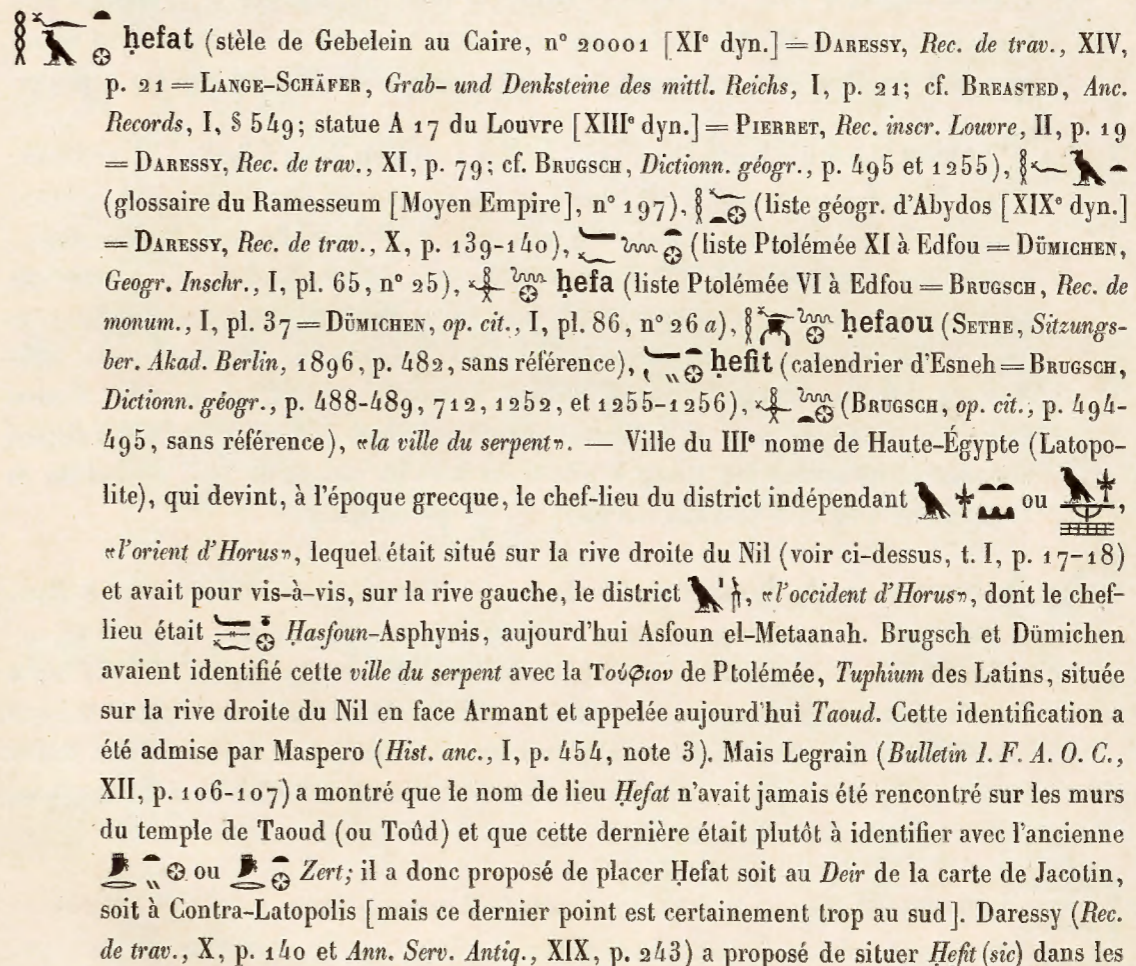 ḥefat (stèle de Gebelein au Caire, n° 20001 [XIᵉ dyn.] = DARESSY, Rec. de trav., XIV,
p. 21 = LANGE-SCHÄFER, Grab- und Denksteine des mittl. Reichs, I, p. 21; cf. BREASTED, Anc.
Records, I, § 549; statue A 17 du Louvre [XIIIᵉ dyn.] = PIERRET, Rec. inscr. Louvre, II, p. 19
= DARESSY, Rec. de trav., XI, p. 79; cf. BRUGSCH, Dictionn. géogr., p. 495 et 1255),
(glossaire du Ramesseum [Moyen Empire], n° 197), (liste géogr. d'Abydos [XIXᵉ dyn.]
= DARESSY, Rec. de trav., X, p. 139-140), (liste Ptolémée XI à Edfou = DÜMICHEN,
Geogr. Inschr., I, pl. 65, n° 25), ḥefa (liste Ptolémée VI à Edfou = BRUGSCH, Rec. de
monum., I, pl. 37 = DÜMICHEN, op. cit., I, pl. 86, n° 26 a), ḥefaou (SETHE, Sitzungs-
ber. Akad. Berlin, 1896, p. 482, sans référence), ḥefit (calendrier d'Esneh = BRUGSCH,
Dictionn. géogr., p. 488-489, 712, 1252, et 1255-1256), (BRUGSCH, op. cit., p. 494-
495, sans référence), «la ville du serpent». — Ville du IIIᵉ nome de Haute-Égypte (Latopo-
lite), qui devint, à l'époque grecque, le chef-lieu du district indépendant ou ,
«l'orient d'Horus», lequel était situé sur la rive droite du Nil (voir ci-dessus, t. I, p. 17-18)
et avait pour vis-à-vis, sur la rive gauche, le district , «l'occident d'Horus», dont le chef-
lieu était Ḥasfoun-Asphynis, aujourd'hui Asfoun el-Metaanah. Brugsch et Dümichen
avaient identifié cette ville du serpent avec la Τούφιον de Ptolémée, Tuphium des Latins, située
sur la rive droite du Nil en face Armant et appelée aujourd'hui Taoud. Cette identification a
été admise par Maspero (Hist. anc., I, p. 454, note 3). Mais Legrain (Bulletin I. F. A. O. C.,
XII, p. 106-107) a montré que le nom de lieu Ḥefat n'avait jamais été rencontré sur les murs
du temple de Taoud (ou Toûd) et que cette dernière était plutôt à identifier avec l'ancienne
ou Zert; il a donc proposé de placer Ḥefat soit au Deir de la carte de Jacotin,
soit à Contra-Latopolis [mais ce dernier point est certainement trop au sud]. Daressy (Rec.
de trav., X, p. 140 et Ann. Serv. Antiq., XIX, p. 243) a proposé de situer Ḥefit (sic) dans les